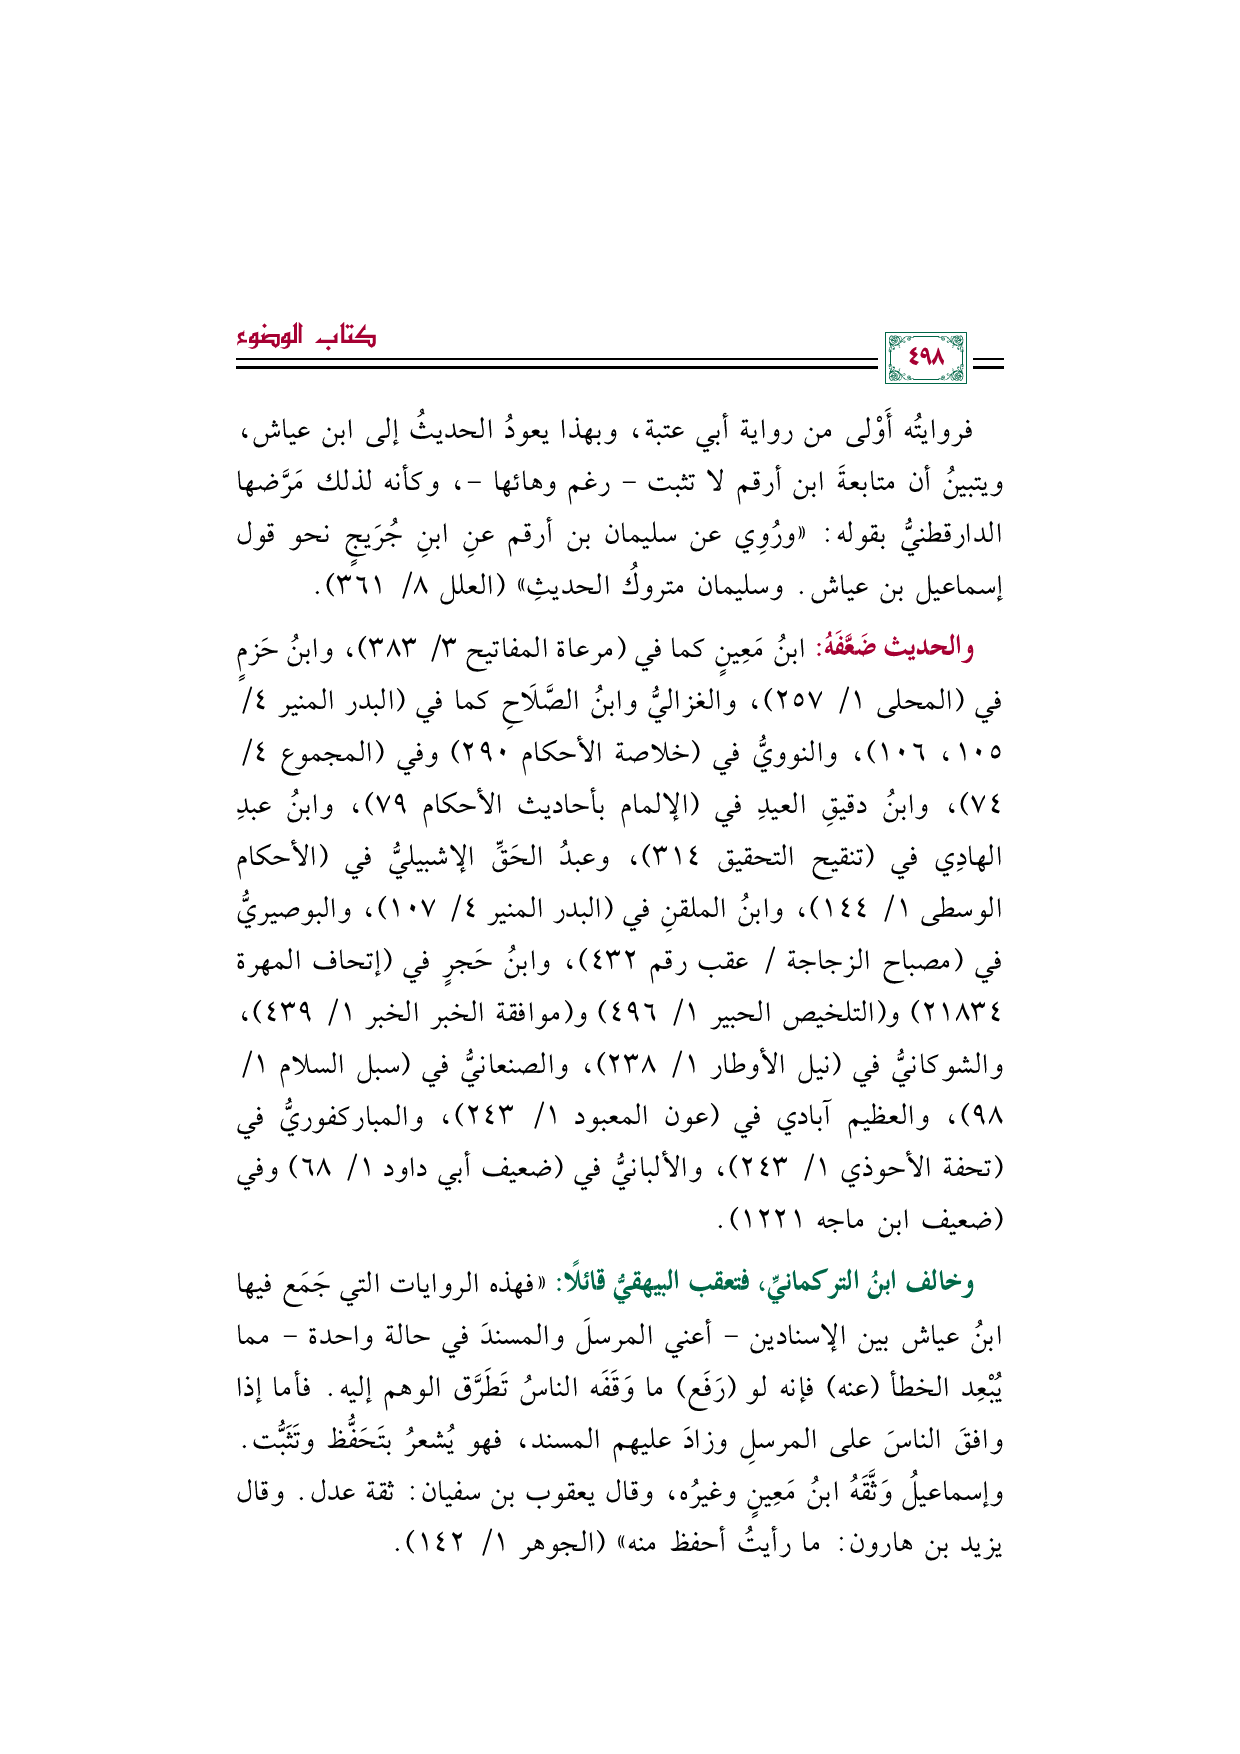 كتاب الوضوء
٤٩٨
فروايتُه أَوْلى من رواية أبي عتبة، وبهذا يعودُ الحديثُ إلى ابن عياش،
ويتبينُ أن متابعةَ ابن أرقم لا تثبت - رغم وهائها -، وكأنه لذلك مَرَّضها
الدارقطنيُّ بقوله: «ورُوِي عن سليمان بن أرقم عنِ ابنِ جُرَيجٍ نحو قول
إسماعيل بن عياش. وسليمان متروكُ الحديثِ» (العلل ٨/ ٣٦١).
والحديث ضَعَّفَهُ: ابنُ مَعِينٍ كما في (مرعاة المفاتيح ٣/ ٣٨٣)، وابنُ حَزمٍ
في (المحلى ١/ ٢٥٧)، والغزاليُّ وابنُ الصَّلَاحِ كما في (البدر المنير ٤/
١٠٥، ١٠٦)، والنوويُّ في (خلاصة الأحكام ٢٩٠) وفي (المجموع ٤/
٧٤)، وابنُ دقيقِ العيدِ في (الإلمام بأحاديث الأحكام ٧٩)، وابنُ عبدِ
الهادِي في (تنقيح التحقيق ٣١٤)، وعبدُ الحَقِّ الإشبيليُّ في (الأحكام
الوسطى ١/ ١٤٤)، وابنُ الملقنِ في (البدر المنير ٤/ ١٠٧)، والبوصيريُّ
في (مصباح الزجاجة / عقب رقم ٤٣٢)، وابنُ حَجرٍ في (إتحاف المهرة
٢١٨٣٤) و(التلخيص الحبير ١/ ٤٩٦) و(موافقة الخبر الخبر ١/ ٤٣٩)،
والشوكانيُّ في (نيل الأوطار ١/ ٢٣٨)، والصنعانيُّ في (سبل السلام ١/
٩٨)، والعظيم آبادي في (عون المعبود ١/ ٢٤٣)، والمباركفوريُّ في
(تحفة الأحوذي ١/ ٢٤٣)، والألبانيُّ في (ضعيف أبي داود ١/ ٦٨) وفي
(ضعيف ابن ماجه ١٢٢١).
وخالف ابنُ التركمانيِّ، فتعقب البيهقيُّ قائلًا: «فهذه الروايات التي جَمَع فيها
ابنُ عياش بين الإسنادين - أعني المرسلَ والمسندَ في حالة واحدة - مما
يُبْعِد الخطأ (عنه) فإنه لو (رَفَع) ما وَقَفَه الناسُ تَطَرَّق الوهم إليه. فأما إذا
وافقَ الناسَ على المرسلِ وزادَ عليهم المسند، فهو يُشعرُ بتَحَفُّظ وتَثَبُّت.
وإسماعيلُ وَثَّقَهُ ابنُ مَعِينٍ وغيرُه، وقال يعقوب بن سفيان: ثقة عدل. وقال
يزيد بن هارون: ما رأيتُ أحفظ منه» (الجوهر ١/ ١٤٢).